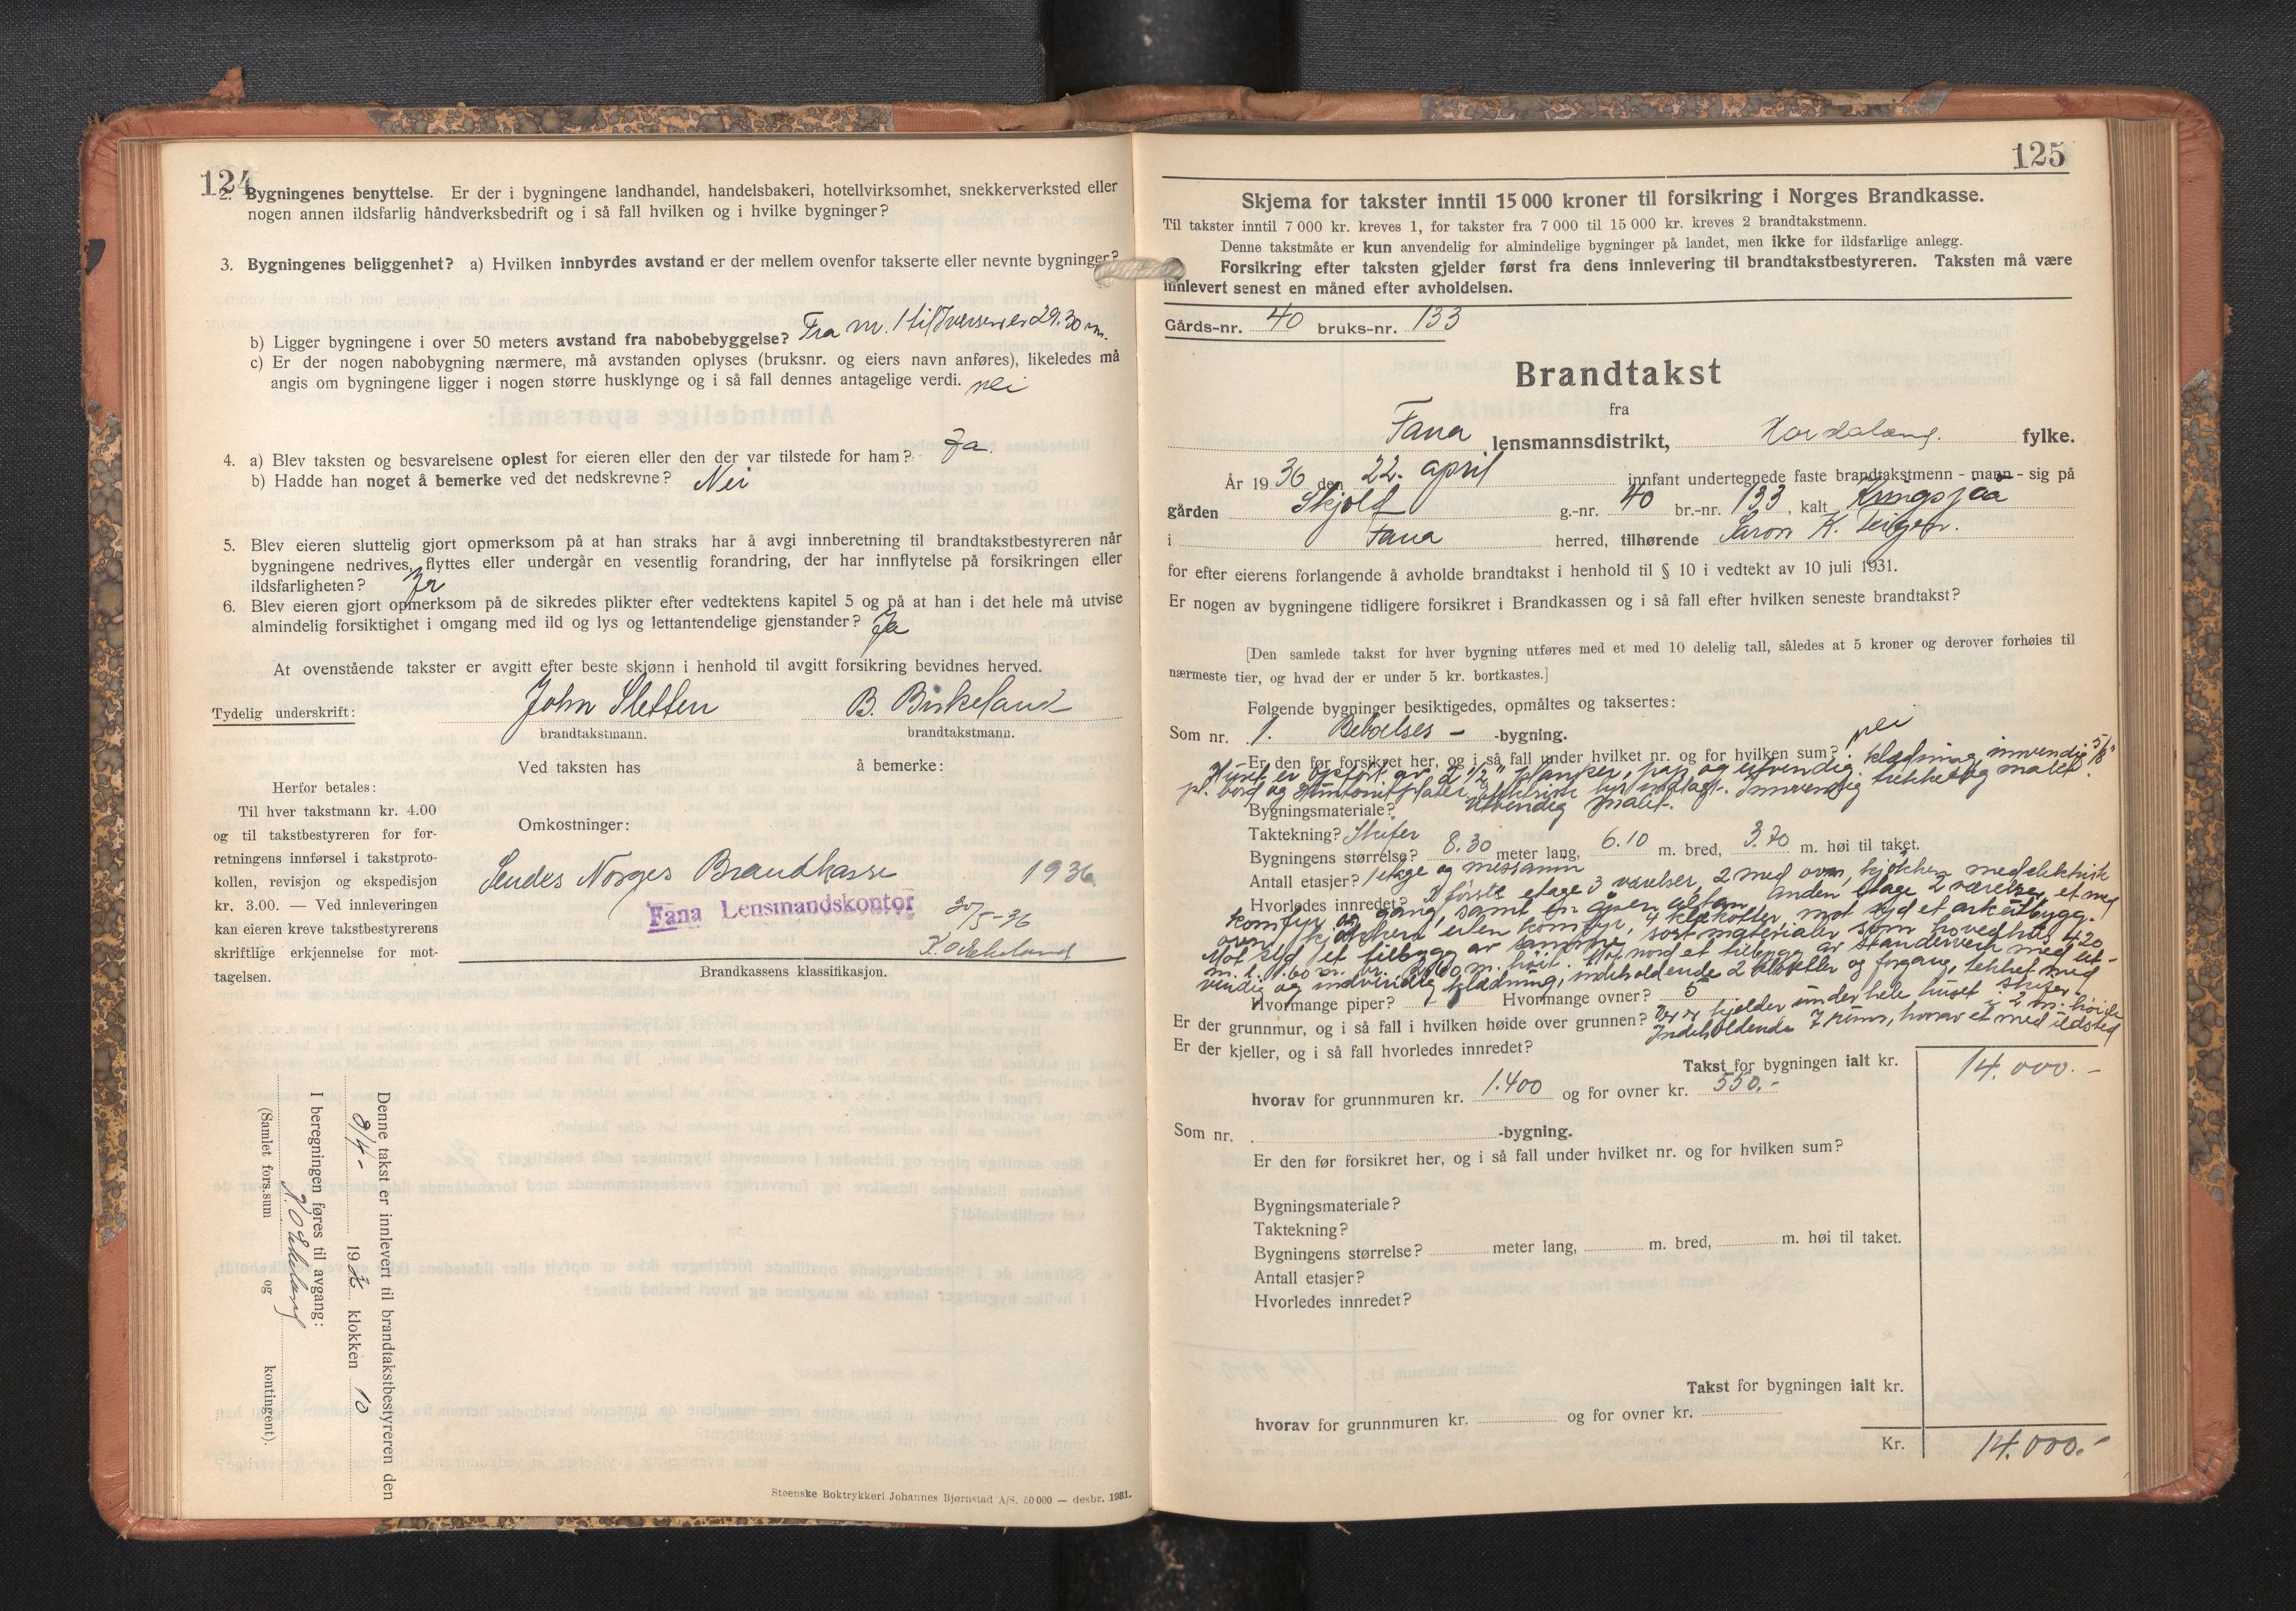 124
2. Bygningenes benyttelse. Er der i bygningene landhandel, handelsbakeri, hotellvirksomhet, snekkerverksted eller
nogen annen ildsfarlig håndverksbedrift og i så fall hvilken og i hvilke bygninger?
3. Bygningenes beliggenhet? a) Hvilken innbyrdes avstand er der mellem ovenfor takserte eller nevnte bygninger?
b) Ligger bygningene i over 50 meters avstand fra nabobebyggelse? Fra nr. 1 til Iversen er 29.30 m.
c) Er der nogen nabobygning nærmere, må avstanden oplyses (bruksnr. og eiers navn anføres), likeledes må
angis om bygningene ligger i nogen større husklynge og i så fall dennes antagelige verdi. nei
4. a) Blev taksten og besvarelsene oplest for eieren eller den der var tilstede for ham? Ja.
b) Hadde han noget å bemerke ved det nedskrevne? Nei
5. Blev eieren sluttelig gjort opmerksom på at han straks har å avgi innberetning til brandtakstbestyreren når
bygningene nedrives, flyttes eller undergår en vesentlig forandring, der har innflytelse på forsikringen eller
ildsfarligheten? Ja
6. Blev eieren gjort opmerksom på de sikredes plikter efter vedtektens kapitel 5 og på at han i det hele må utvise
almindelig forsiktighet i omgang med ild og lys og lettantendelige gjenstander? Ja
At ovenstående takster er avgitt efter beste skjønn i henhold til avgitt forsikring bevidnes herved.
Tydelig underskrift: John Sletten B. Birkeland
brandtakstmann. brandtakstmann.
Ved taksten has å bemerke:
Herfor betales:
Til hver takstmann kr. 4.00
og til takstbestyreren for for-
retningens innførsel i takstproto-
kollen, revisjon og ekspedisjon
kr. 3.00. — Ved innleveringen
kan eieren kreve takstbestyrerens
skriftlige erkjennelse for mot-
tagelsen.
Omkostninger:
Sendes Norges Brandkasse 1936
Fana Lensmandskontor 30/5-36
Brandkassens klassifikasjon.
Denne takst er innlevert til brandtakstbestyreren den
8/4- 19 klokken 10
I beregningen føres til avgang:
(Samlet fors.sum og kontingent).
Steenske Boktrykkeri Johannes Bjørnstad A/S. 50 000 — desbr. 1931.
125
Skjema for takster inntil 15 000 kroner til forsikring i Norges Brandkasse.
Til takster inntil 7 000 kr. kreves 1, for takster fra 7 000 til 15 000 kr. kreves 2 brandtakstmenn.
Denne takstmåte er kun anvendelig for almindelige bygninger på landet, men ikke for ildsfarlige anlegg.
Forsikring efter taksten gjelder først fra dens innlevering til brandtakstbestyreren. Taksten må være
innlevert senest en måned efter avholdelsen.
Gårds-nr. 40 bruks-nr. 133
Brandtakst
fra
Fana lensmannsdistrikt, Hordaland. fylke.
År 1936 den 22. april innfant undertegnede faste brandtakstmenn - mann - sig på
gården Skjold g.-nr. 40 br.-nr. 133, kalt Kringsjaa
i Fana herred, tilhørende K. Teigen.
for efter eierens forlangende å avholde brandtakst i henhold til § 10 i vedtekt av 10 juli 1931.
Er nogen av bygningene tidligere forsikret i Brandkassen og i så fall efter hvilken seneste brandtakst?
[Den samlede takst for hver bygning utføres med et med 10 delelig tall, således at 5 kroner og derover forhøies til
nærmeste tier, og hvad der er under 5 kr. bortkastes.]
Følgende bygninger besiktigedes, opmåltes og taksertes:
Som nr. 1. Beboelses - -bygning.
Er den før forsikret her, og i så fall under hvilket nr. og for hvilken sum? nei
Huset er opført av 2 1/2" planker, pap og utvendig klædning, innvendig 5/8"
pl. bord og Huntonitplater, elektrisk lys indlagt. Innvendig trukket og malet.
Bygningsmateriale? Utvendig malet.
Taktekning? Skifer
Bygningens størrelse? 8.30 meter lang, 6.10 m. bred, 3.70 m. høi til taket.
Antall etasjer? 1 etage og messanin
Hvorledes innredet? I første etage 3 værelser, 2 med ovn, kjøkken med elektrisk
komfyr og gang, samt en åpen altan. Anden etage 2 værelser, et med
ovn, kjøkken uten komfyr, 4 klækotter, mot syd et arkutbygg.
Mot syd et tilbygg av samme sort materialer som hovedhus, 4.20
m. l. 1.60 m. br. 2.60 m. høit. Mot nord et tilbygg av standerverk med ut-
vendig og indvendig klædning, indeholdende 2 kloseller og forgang, tekket med skifer
Hvormange piper? 1 Hvormange ovner? 5
Er der grunnmur, og i så fall i hvilken høide over grunnen? Der er kjelder under hele huset 2 m. høide
Er der kjeller, og i så fall hvorledes innredet? Indeholdende 7 rum, hvorav et med ildsted
Takst for bygningen ialt kr. 14.000.-
hvorav for grunnmuren kr. 1.400 og for ovner kr. 550.-
Som nr. -bygning.
Er den før forsikret her, og i så fall under hvilket nr. og for hvilken sum?
Bygningsmateriale?
Taktekning?
Bygningens størrelse? meter lang, m. bred, m. høi til taket.
Antall etasjer?
Hvorledes innredet?
Takst for bygningen ialt kr.
hvorav for grunnmuren kr. og for ovner kr.
Kr. 14.000.-